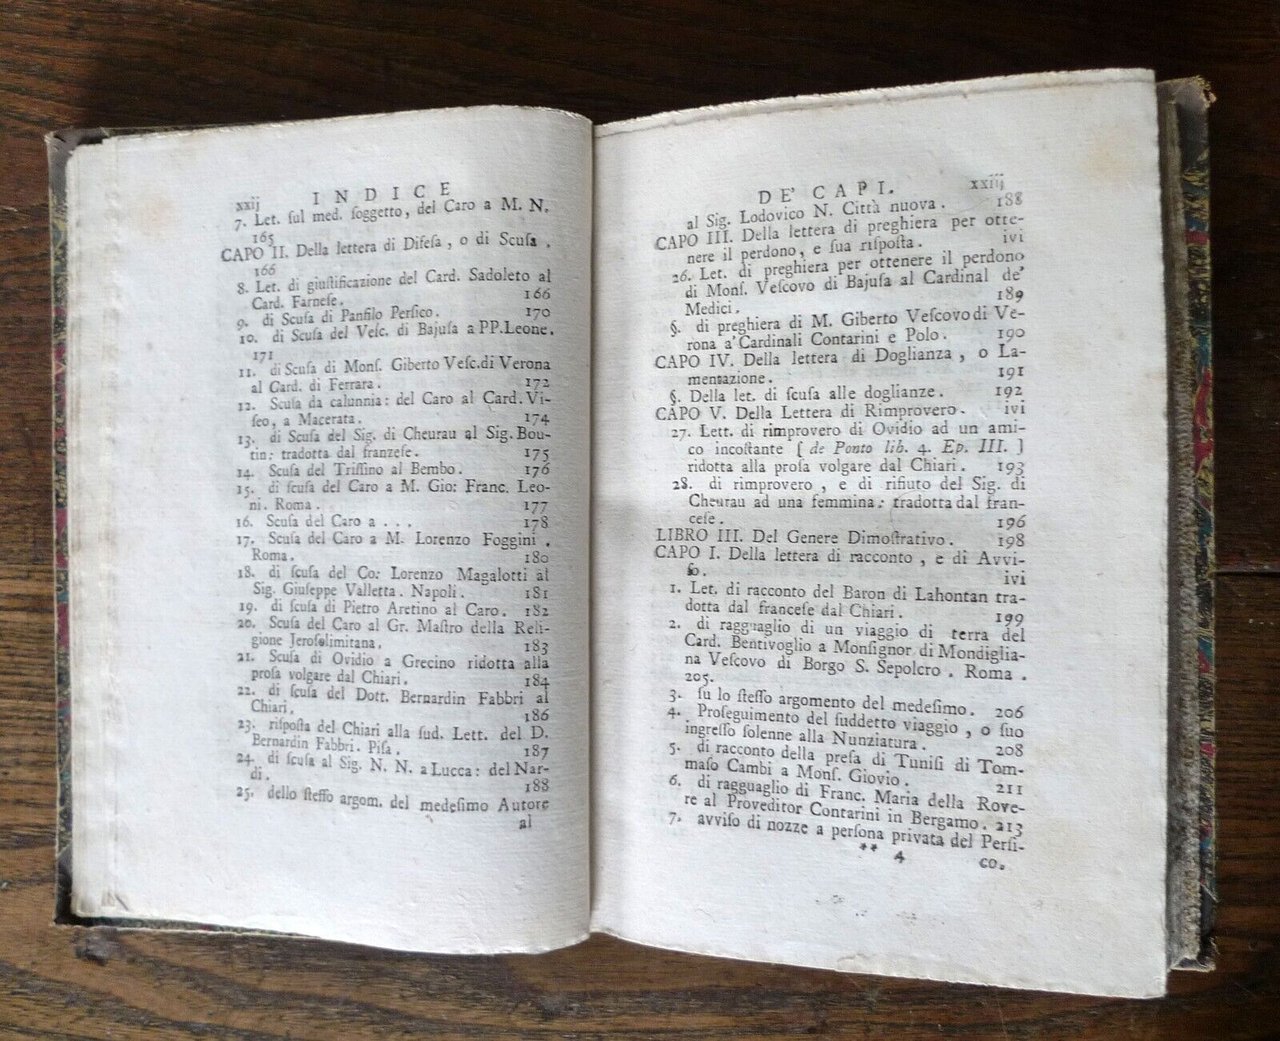 xxij INDICE
7. Let. ſul med. ſoggetto, del Caro a M. N.
165
CAPO II. Della lettera di Difeſa, o di Scuſa.
166
8. Let. di giuſtificazione del Card. Sadoleto al
Card. Farneſe. 166
9. di Scuſa di Panfilo Perſico. 170
10. di Scuſa del Veſc. di Bajuſa a PP. Leone.
171
11. di Scuſa di Monſ. Giberto Veſc. di Verona
al Card. di Ferrara. 172
12. Scuſa da calunnia: del Caro al Card. Vi-
ſeo, a Macerata. 174
13. di Scuſa del Sig. di Cheurau al Sig. Bou-
tin: tradotta dal franzeſe. 175
14. Scuſa del Triſſino al Bembo. 176
15. di ſcuſa del Caro a M. Gio: Franc. Leo-
ni. Roma. 177
16. Scuſa del Caro a . . . 178
17. Scuſa del Caro a M. Lorenzo Foggini.
Roma. 180
18. di ſcuſa del Co: Lorenzo Magalotti al
Sig. Giuſeppe Valletta. Napoli. 181
19. di ſcuſa di Pietro Aretino al Caro. 182
20. Scuſa del Caro al Gr. Maſtro della Reli-
gione Jeroſolimitana. 183
21. Scuſa di Ovidio a Grecino ridotta alla
proſa volgare dal Chiari. 184
22. di ſcuſa del Dott. Bernardin Fabbri al
Chiari. 186
23. riſpoſta del Chiari alla ſud. Lett. del D.
Bernardin Fabbri. Piſa. 187
24. di ſcuſa al Sig. N. N. a Lucca: del Nar-
di. 188
25. dello ſteſſo argom. del medeſimo Autore
al
DE' CAPI. xxiij
al Sig. Lodovico N. Città nuova. 188
CAPO III. Della lettera di preghiera per otte-
nere il perdono, e ſua riſpoſta. ivi
26. Let. di preghiera per ottenere il perdono
di Monſ. Veſcovo di Bajuſa al Cardinal de'
Medici. 189
§. di preghiera di M. Giberto Veſcovo di Ve-
rona a' Cardinali Contarini e Polo. 190
CAPO IV. Della lettera di Doglianza, o La-
mentazione. 191
§. Della let. di ſcuſa alle doglianze. 192
CAPO V. Della Lettera di Rimprovero. ivi
27. Lett. di rimprovero di Ovidio ad un ami-
co incoſtante [ de Ponto lib. 4. Ep. III. ]
ridotta alla proſa volgare dal Chiari. 193
28. di rimprovero, e di rifiuto del Sig. di
Cheurau ad una femmina: tradotta dal fran-
ceſe. 196
LIBRO III. Del Genere Dimoſtrativo. 198
CAPO I. Della lettera di racconto, e di Avvi-
ſo. ivi
1. Let. di racconto del Baron di Lahontan tra-
dotta dal franceſe dal Chiari. 199
2. di ragguaglio di un viaggio di terra del
Card. Bentivoglio a Monſignor di Mondiglia-
na Veſcovo di Borgo S. Sepolcro. Roma.
205.
3. ſu lo ſteſſo argomento del medeſimo. 206
4. Proſeguimento del ſuddetto viaggio, o ſuo
ingreſſo ſolenne alla Nunziatura. 208
5. di racconto della preſa di Tuniſi di Tom-
maſo Cambi a Monſ. Giovio. 211
6. di ragguaglio di Franc. Maria della Rove-
re al Proveditor Contarini in Bergamo. 213
7. avviſo di nozze a perſona privata del Perſi-
** 4 co.